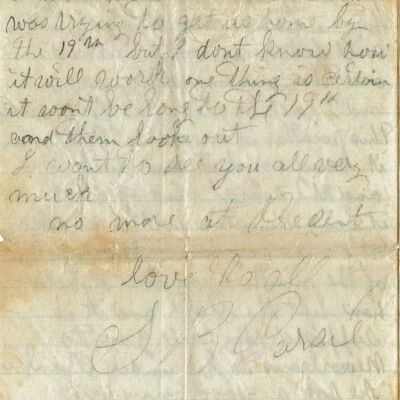 was trying to get us home by
the 19th but I dont know how
it will work one thing is certin
it wont be long to the 19th
and them look out
I want to see you all very
much
no more at Present
love to all
S B